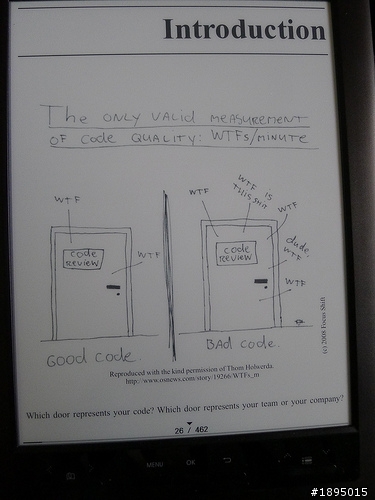 Introduction
The ONLY VALID MEASUREMENT
OF Code QUALITY: WTFs/MINUTE
WTF
code
REVIEW
WTF
Good code.
WTF
WTF IS
THIS SHIT
WTF
code
REVIEW
dude,
WTF
WTF
BAd code.
(c) 2008 Focus Shift
Reproduced with the kind permission of Thom Holwerda.
http://www.osnews.com/story/19266/WTFs_m
Which door represents your code? Which door represents your team or your company?
26 / 462
MENU
OK
#1895015